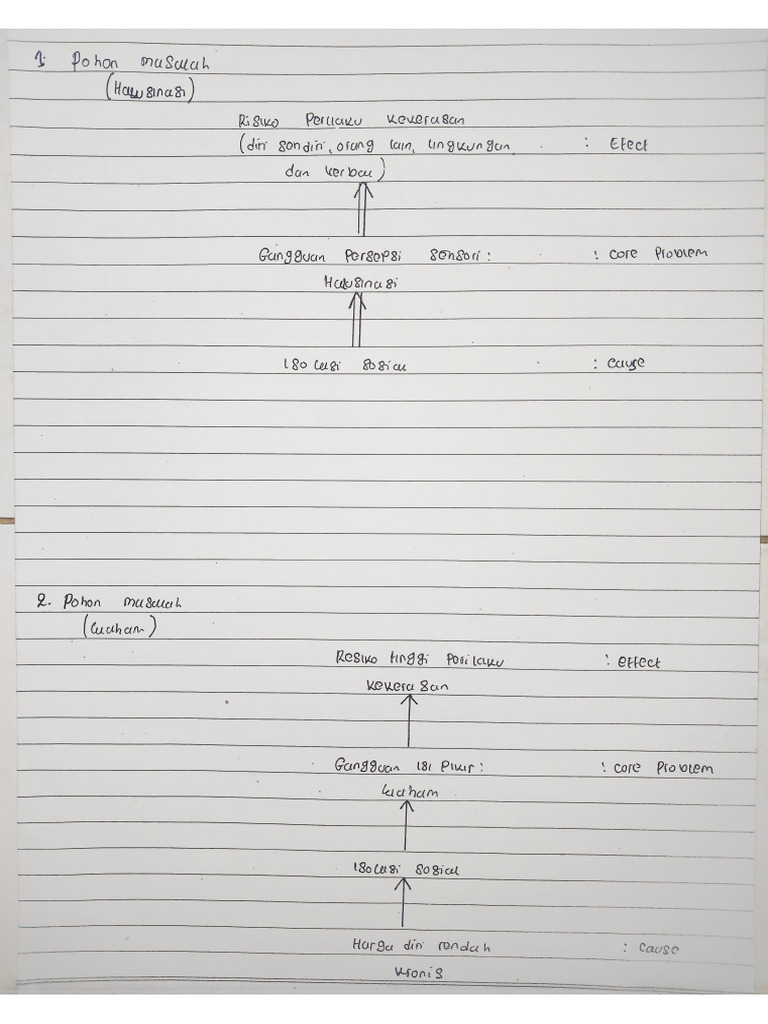 1. Pohon masalah
(Halusinasi)
Risiko Perilaku Kekerasan
(diri sendiri, orang lain, lingkungan, : Efect
dan verbal)
Gangguan Persepsi sensori : : core Problem
Halusinasi
Isolasi sosial : cause
2. Pohon masalah
(waham)
Resiko tinggi Perilaku : effect
kekerasan
Gangguan isi Pikir : : core Problem
waham
Isolasi sosial
Harga diri rendah : cause
kronis